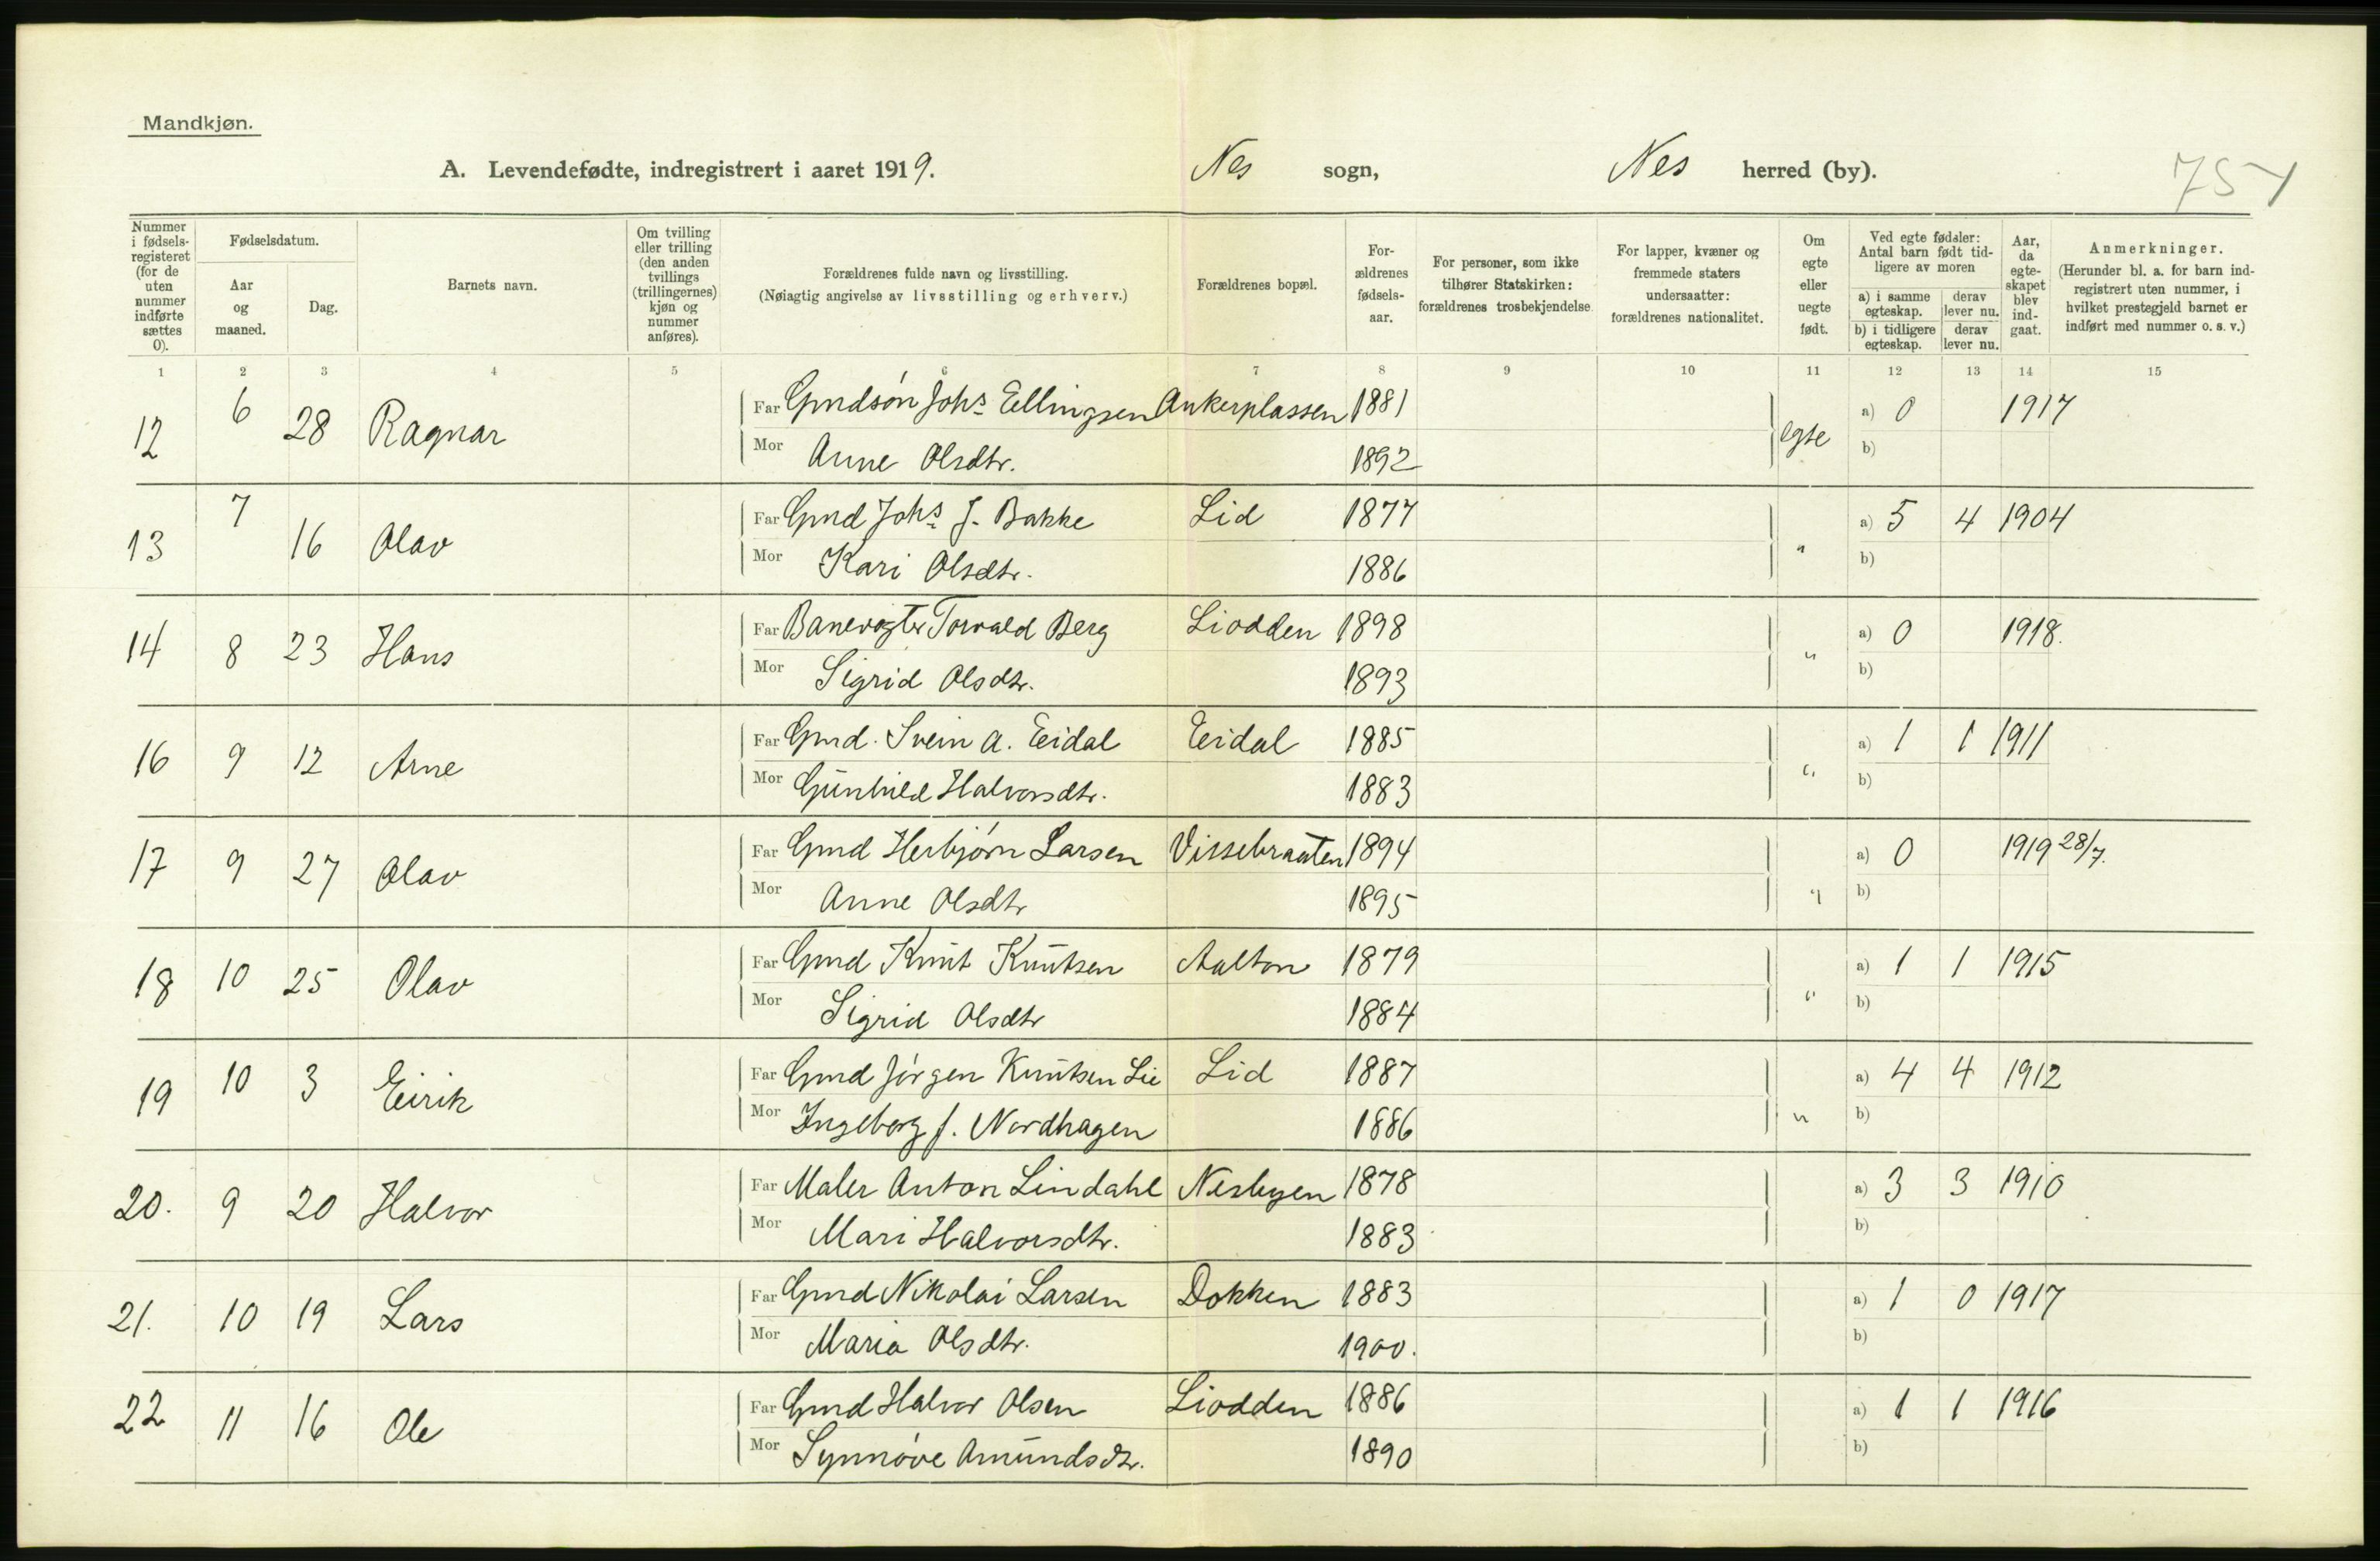 Mandkjøn.
A. Levendefødte, indregistrert i aaret 1919. Nes sogn, Nes herred (by). 757
Nummer i fødsels-registeret (for de uten nummer indførte sættes 0).
Fødselsdatum.
Aar og maaned.
Dag.
Barnets navn.
Om tvilling eller trilling (den anden tvillings (trillingernes) kjøn og nummer anføres).
Forældrenes fulde navn og livsstilling.
(Nøiagtig angivelse av livsstilling og erhverv.)
Forældrenes bopæl.
For-ældrenes fødsels-aar.
For personer, som ikke tilhører Statskirken: forældrenes trosbekjendelse.
For lapper, kvæner og fremmede staters undersaatter: forældrenes nationalitet.
Om egte eller uegte født.
Ved egte fødsler: Antal barn født tid-ligere av moren
a) i samme egteskap. derav lever nu.
b) i tidligere egteskap. derav lever nu.
Aar, da egte-skapet blev ind-gaat.
Anmerkninger.
(Herunder bl. a. for barn ind-registrert uten nummer, i hvilket prestegjeld barnet er indført med nummer o. s. v.)
1 2 3 4 5 6 7 8 9 10 11 12 13 14 15
12 6 28 Ragnar Far Gmdsøn Johs Ellingsen Ankerplassen 1881 egte a) 0 1917
Mor Anne Olsdtr. 1892 b)
13 7 16 Olav Far Gmd Johs J. Bakke Lid 1877 " a) 5 4 1904
Mor Kari Olsdtr. 1886 b)
14 8 23 Hans Far Banevogter Torvald Berg Liodden 1898 " a) 0 1918.
Mor Sigrid Olsdtr. 1893 b)
16 9 12 Arne Far Gmd. Svein A. Eidal Eidal 1885 " a) 1 1 1911
Mor Gunhild Halvorsdtr. 1883 b)
17 9 27 Olav Far Gmd Herbjørn Larsen Vissebraaten 1894 " a) 0 1919 28/7.
Mor Anne Olsdtr 1895 b)
18 10 25 Olav Far Gmd Knut Knutsen Aalton 1879 " a) 1 1 1915
Mor Sigrid Olsdtr 1884 b)
19 10 3 Eirik Far Gmd Jørgen Knutsen Lie Lid 1887 " a) 4 4 1912
Mor Ingeborg f. Nordhagen 1886 b)
20. 9 20 Halvor Far Maler Anton Lindahl Nesbyen 1878 a) 3 3 1910
Mor Mari Halvorsdtr. 1883 b)
21. 10 19 Lars Far Gmd Nikolai Larsen Dokken 1883 a) 1 0 1917
Mor Maria Olsdtr. 1900. b)
22 11 16 Ole Far Gmd Halvor Olsen Liodden 1886 a) 1 1 1916
Mor Synnøve Amundsdtr. 1890 b)